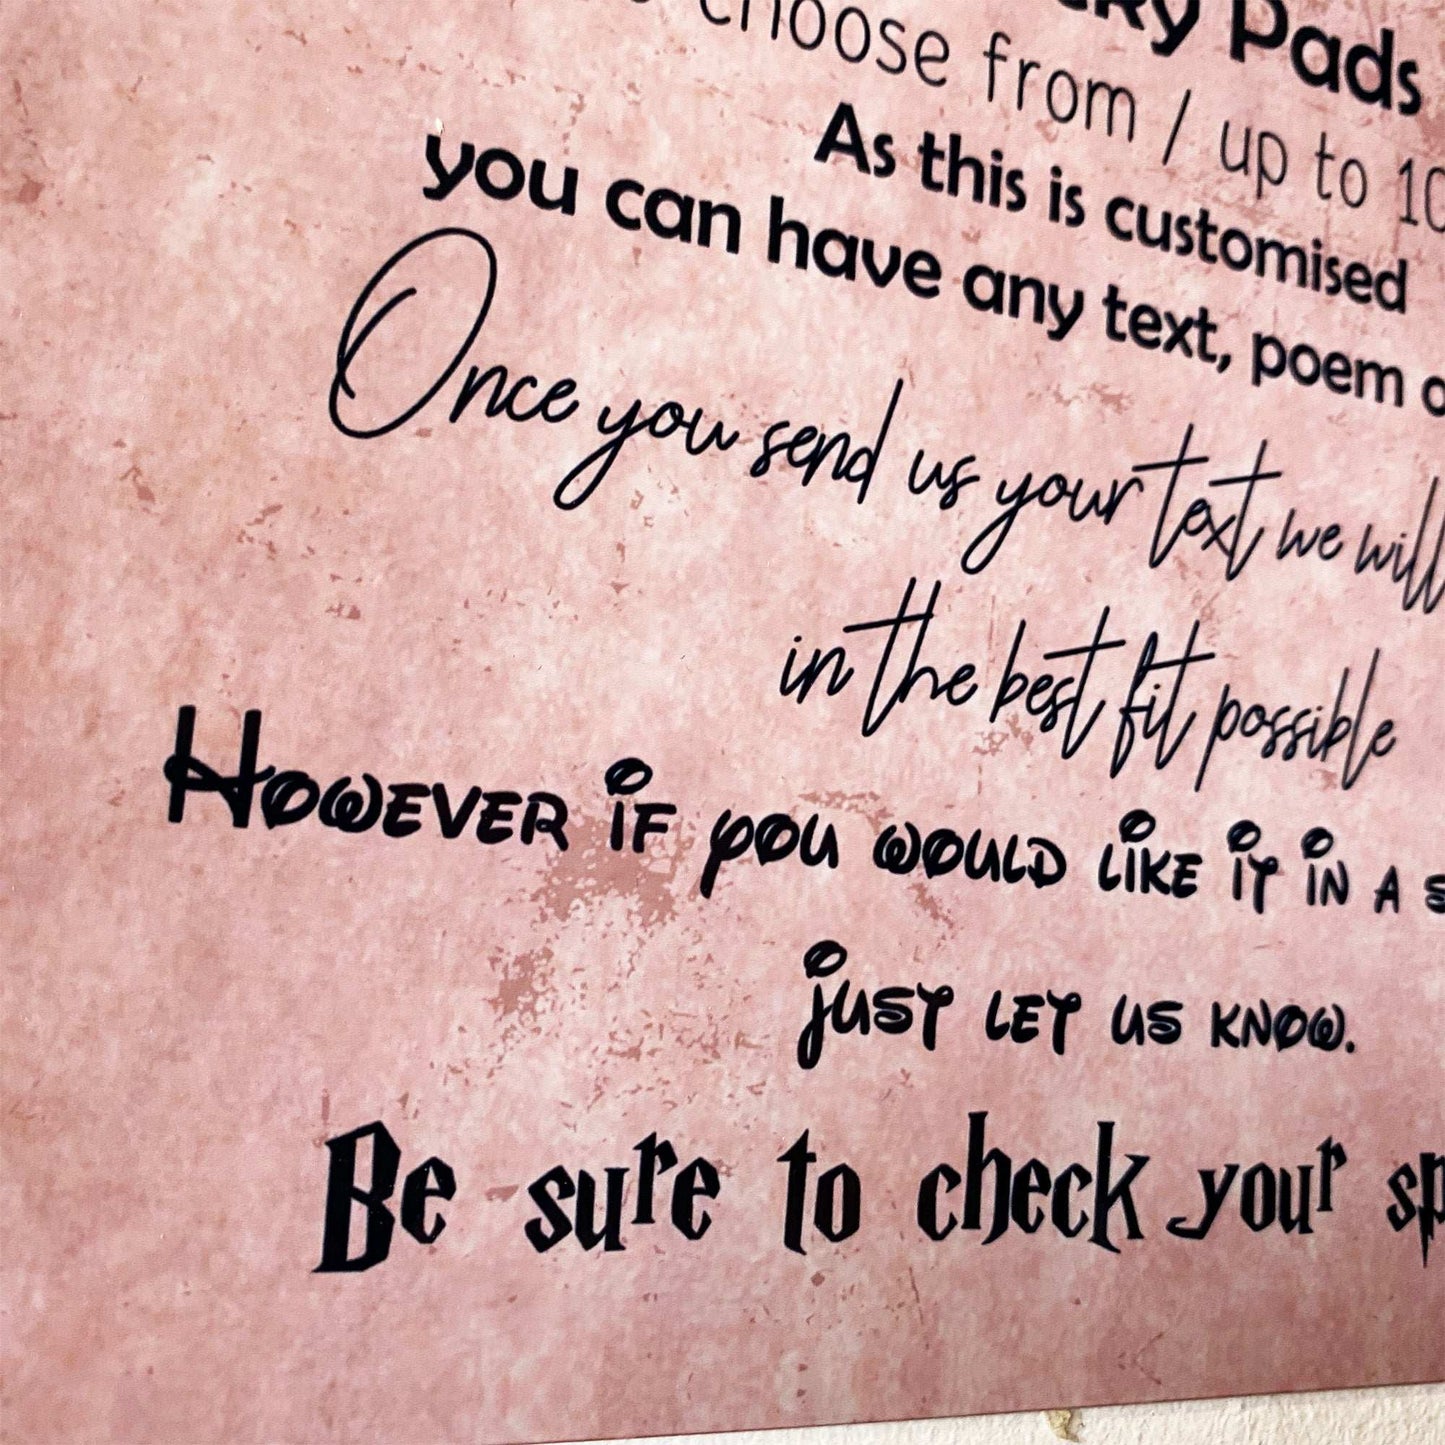 Pads
choose from / up to 10
As this is customised
you can have any text, poem
Once you send us your text we will
in the best fit possible
However if you would like it in a
just let us know.
Be sure to check your